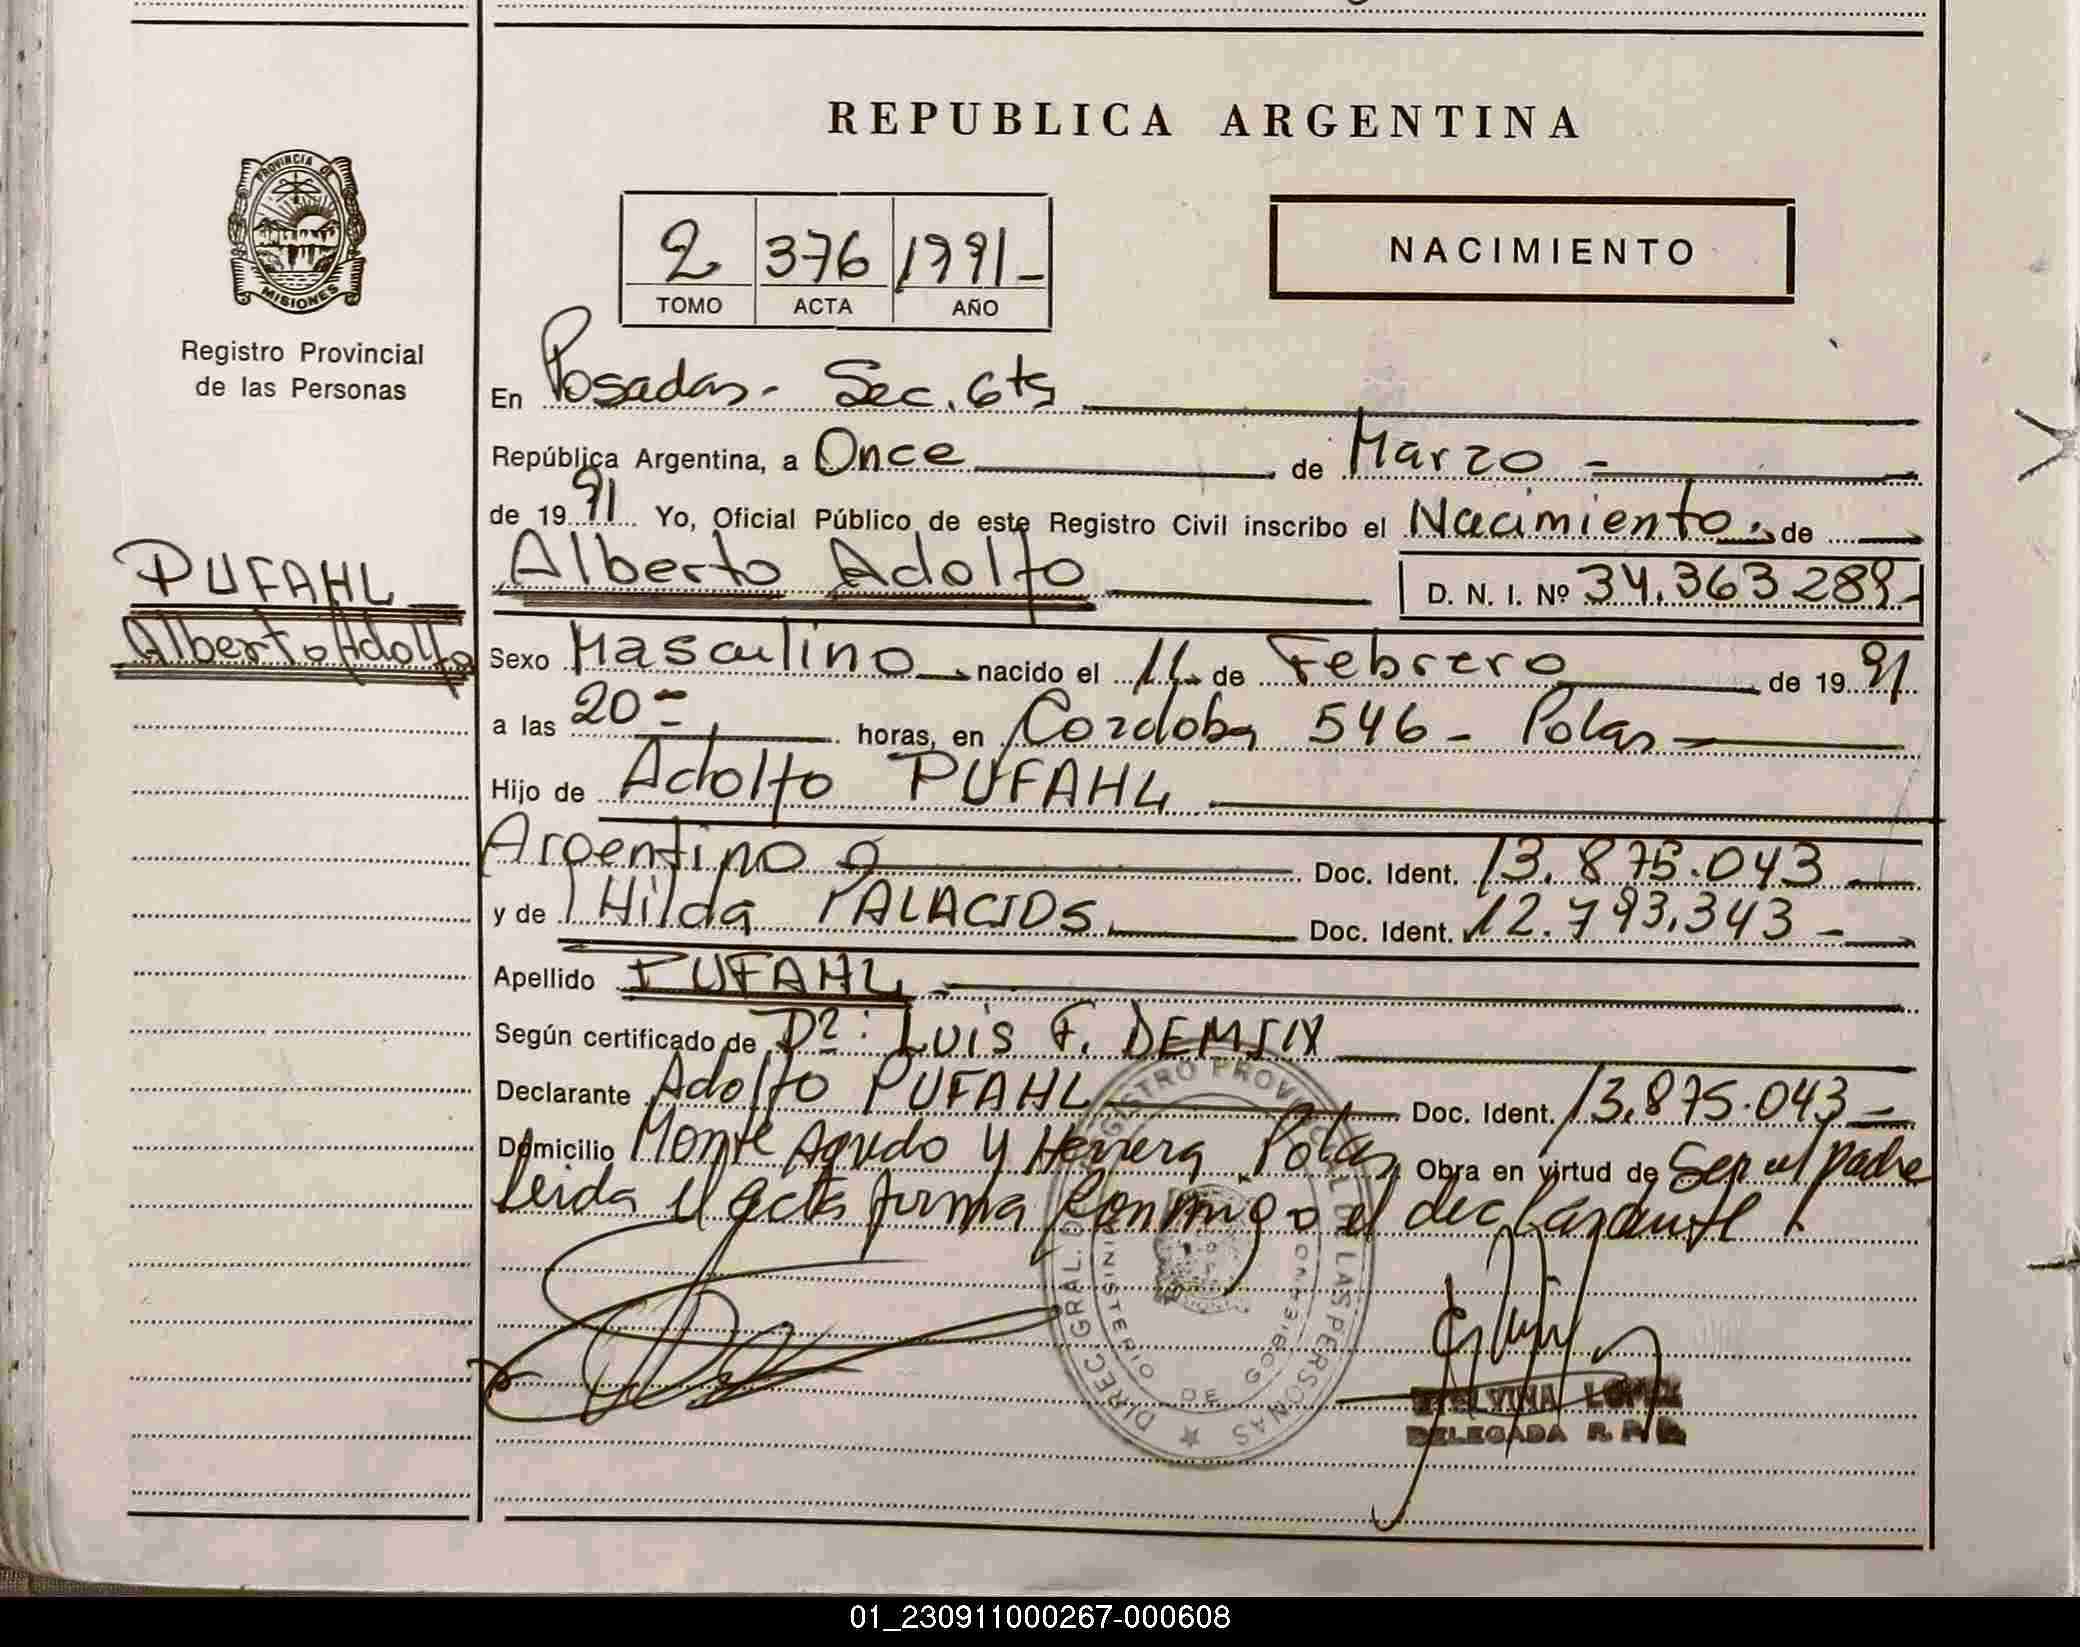 REPUBLICA ARGENTINA
PROVINCIA DE
MISIONES
Registro Provincial
de las Personas
2 376 1991-
TOMO ACTA AÑO
NACIMIENTO
En Posadas- Sec. 6ta
República Argentina, a Once de Marzo -
de 19 91 Yo, Oficial Público de este Registro Civil inscribo el Nacimiento de
PUFAHL
Alberto Adolfo
Alberto Adolfo D. N. I. Nº 34.363 289-
Sexo Masculino nacido el 11 de Febrero de 19 91
a las 20 horas, en Cordoba 546 - Pdas
Hijo de Adolfo PUFAHL
Argentino Doc. Ident. 13.875.043
y de Hilda PALACIOS Doc. Ident. 12.793.343 -
Apellido PUFAHL
Según certificado de Dr: Luis F.
Declarante Adolfo PUFAHL Doc. Ident. 13.875.043 -
Domicilio Monte Agudo y Herrera Pdas Obra en virtud de Ser el padre
leida el acta firma conmigo el declarante
DIREC. GRAL. DEL REGISTRO PROVINCIAL DE LAS PERSONAS
MINISTERIO DE GOBIERNO
LOPEZ
DELEGADA R. P. P.
01_230911000267-000608